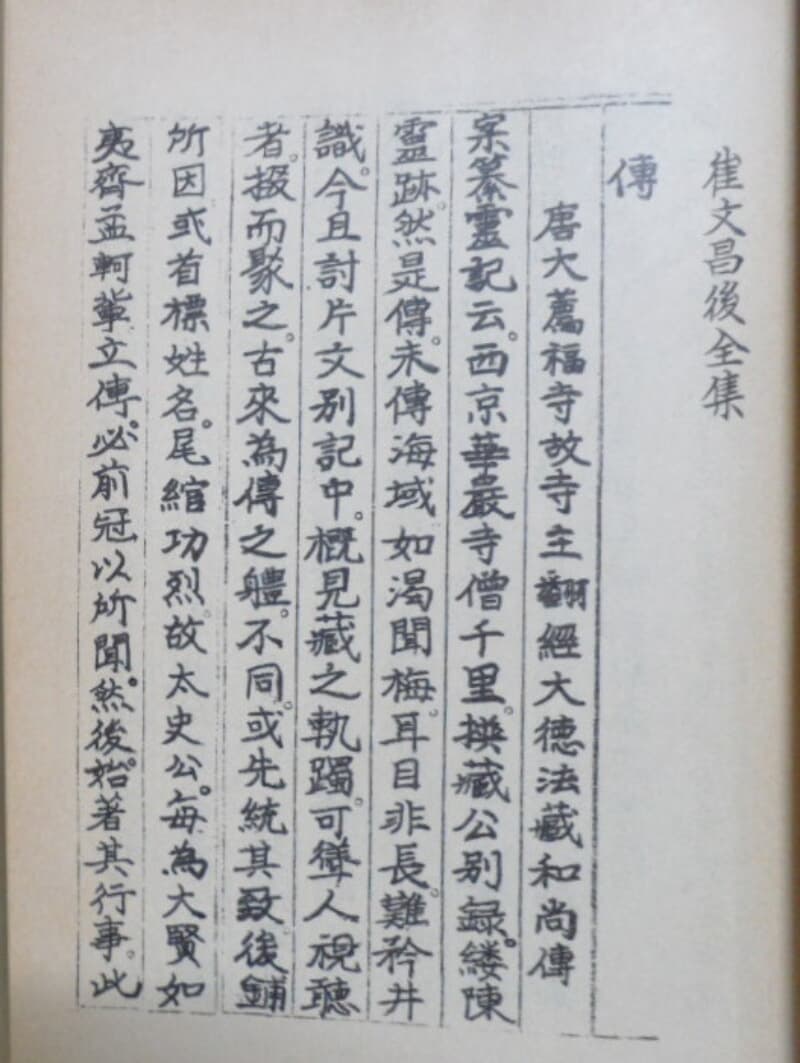 崔文昌後全集
傳
唐大薦福寺故寺主翻經大德法藏和尚傳
案纂靈記云。西京華嚴寺僧千里。撰藏公別録。縷陳
靈跡。然是傳。未傳海域。如渴聞梅。耳目非長。難矜井
識。今且討片文別記中。概見藏之軌躅。可聳人視聽
者。掇而聚之。古來為傳之軆。不同。或先統其致。後鋪
所因或首標姓名。尾綰功烈。故太史公。每為大賢如
夷齊孟軻輩立傳。必前冠以所聞。然後。始著其行事。此